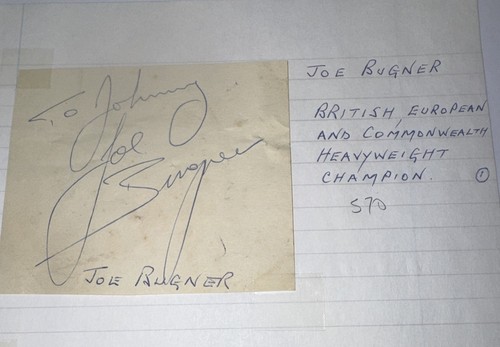 To Johnny
Joe
Bugner
JOE BUGNER
JOE BUGNER
BRITISH, EUROPEAN
AND COMMONWEALTH
HEAVYWEIGHT
CHAMPION. ①
570